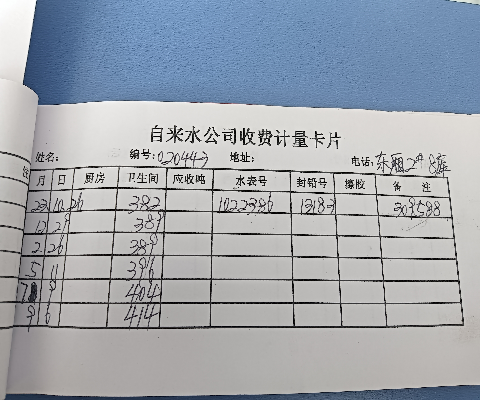 自来水公司收费计量卡片
姓名： 编号：020443 地址： 电话：东
月 日 厨房 卫生间 应收吨 水表号 封铅号 橡胶 备 注
23 10 26 382 1022386 13183 309588
12 29 389
2 26 389
5 11 396
7 9 404
9 6 414